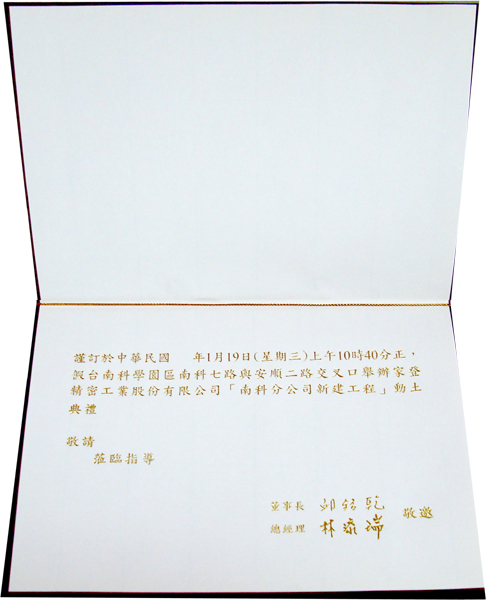 謹訂於中華民國 年1月19日(星期三)上午10時40分正,
假台南科學園區南科七路與安順二路交叉口舉辦家登
精密工業股份有限公司「南科分公司新建工程」動土
典禮
敬請
蒞臨指導
董事長 邱銘乾 敬邀
總經理 林添瑞